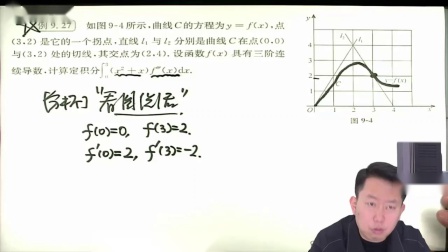 例 9.27 如图9-4所示,曲线C的方程为y=f(x),点
(3,2)是它的一个拐点,直线l₁与l₂分别是曲线C在点(0,0)
与(3,2)处的切线,其交点为(2,4).设函数f(x)具有三阶连
续导数,计算定积分∫₀³(x²+x)f'''(x)dx.
"看图说话"
f(0)=0, f(3)=2.
f'(0)=2, f'(3)=-2.
y
4
3
2
1
O 1 2 3 4 x
l₁
l₂
y=f(x)
图 9-4